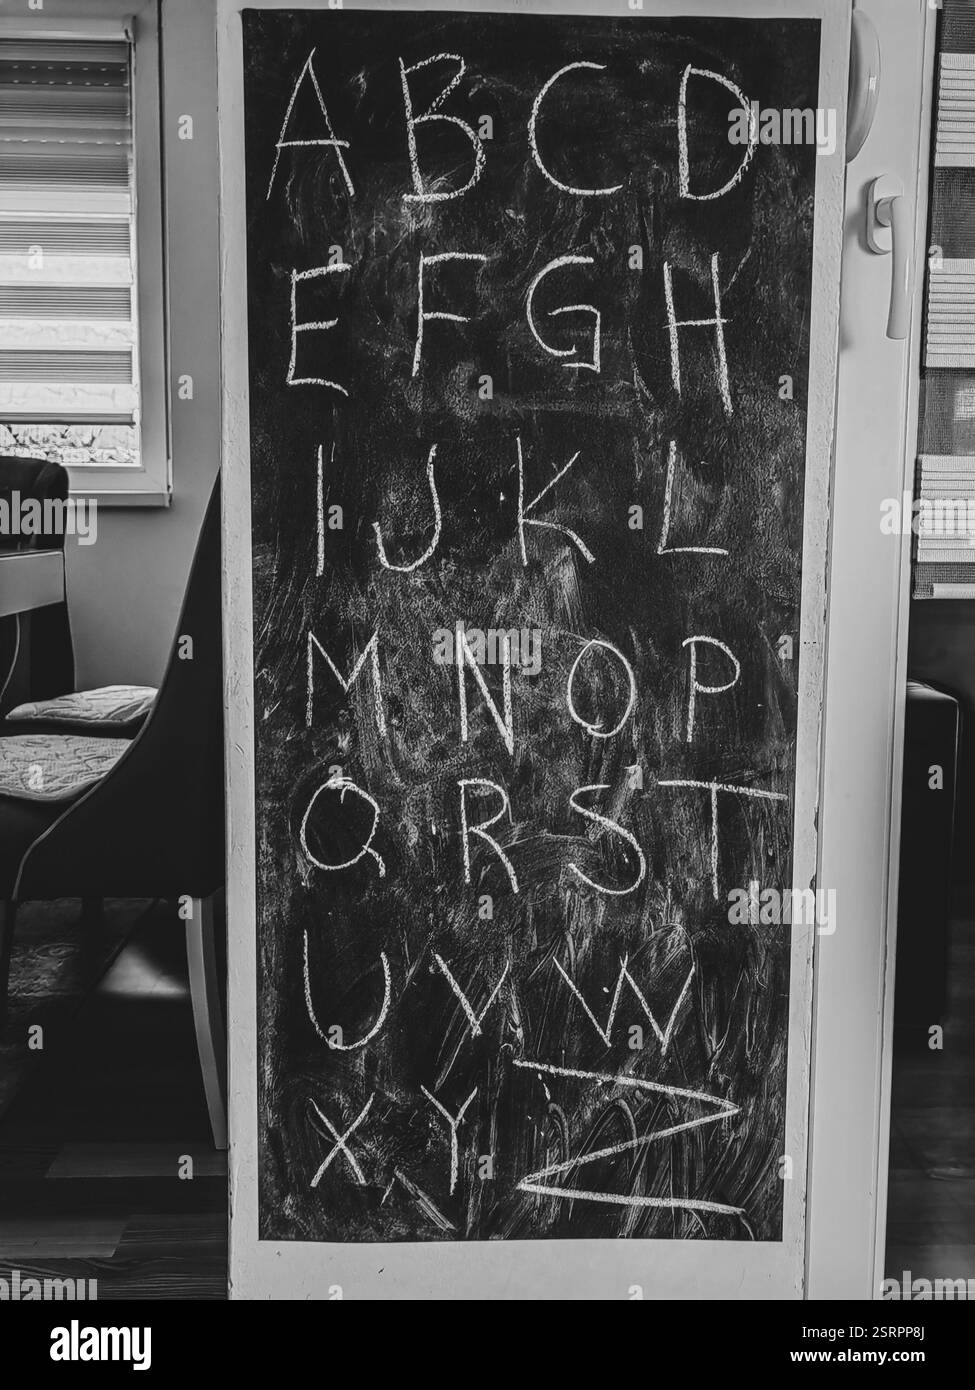 A B C D
E F G H
I J K L
M N O P
Q R S T
U V W
X Y Z
alamy
Image ID: 2SRPP8J
www.alamy.com